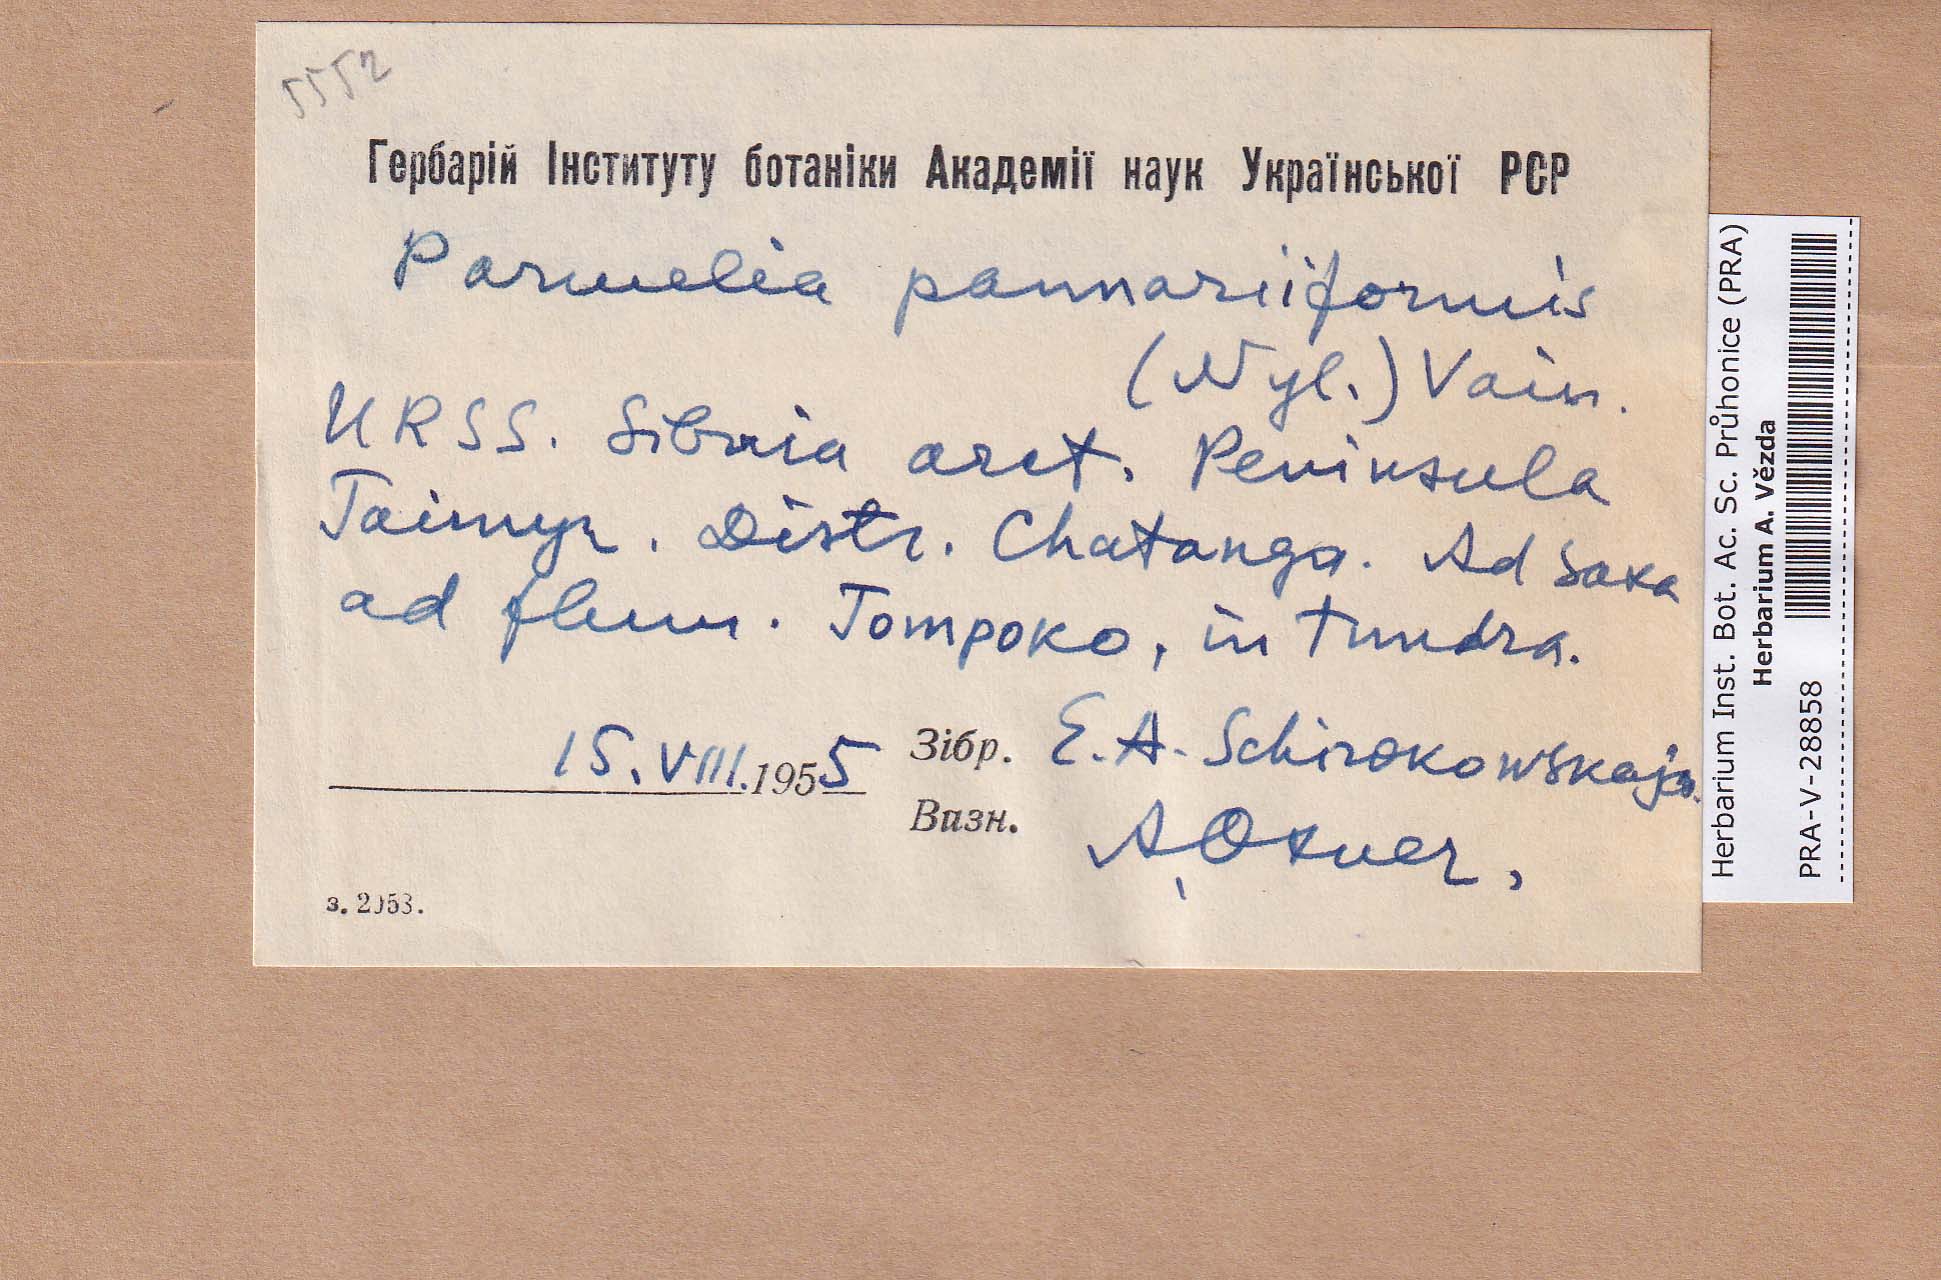 5552
Гербарій Інституту ботаніки Академії наук Української РСР
Parmelia pannariiformis
(Nyl.) Vain.
URSS. Sibiria arct. Peninsula
Taimyr. Distr. Chatanga. Ad saxa
ad flum. Tompoko, in tundra.
15.VIII.1955 Зібр. E. A. Schirokowskaja.
Визн. A. Oxner,
з. 2053.
Herbarium Inst. Bot. Ac. Sc. Průhonice (PRA)
Herbarium A. Vězda
PRA-V-28858